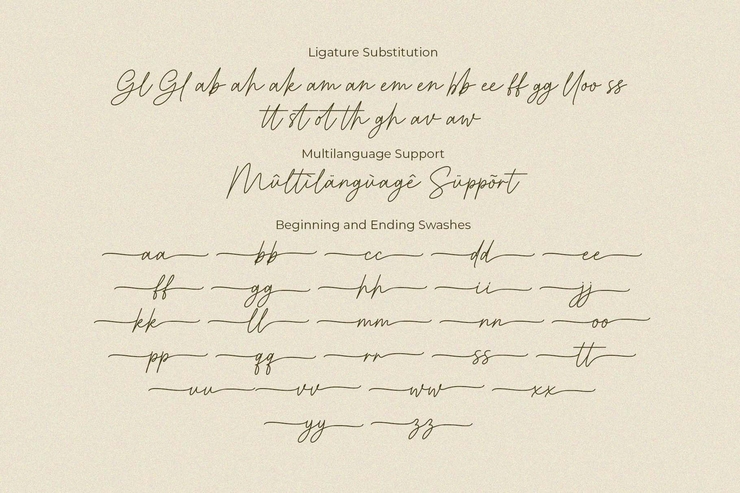 Ligature Substitution
Gl Gl ab ah ak am an em en bb ee ff gg ll oo ss
tt st ot th gh av aw
Multilanguage Support
Mûltìlängùagê Süppõrt
Beginning and Ending Swashes
aa bb cc dd ee
ff gg hh ii jj
kk ll mm nn oo
pp qq rr ss tt
uu vv ww xx
yy zz